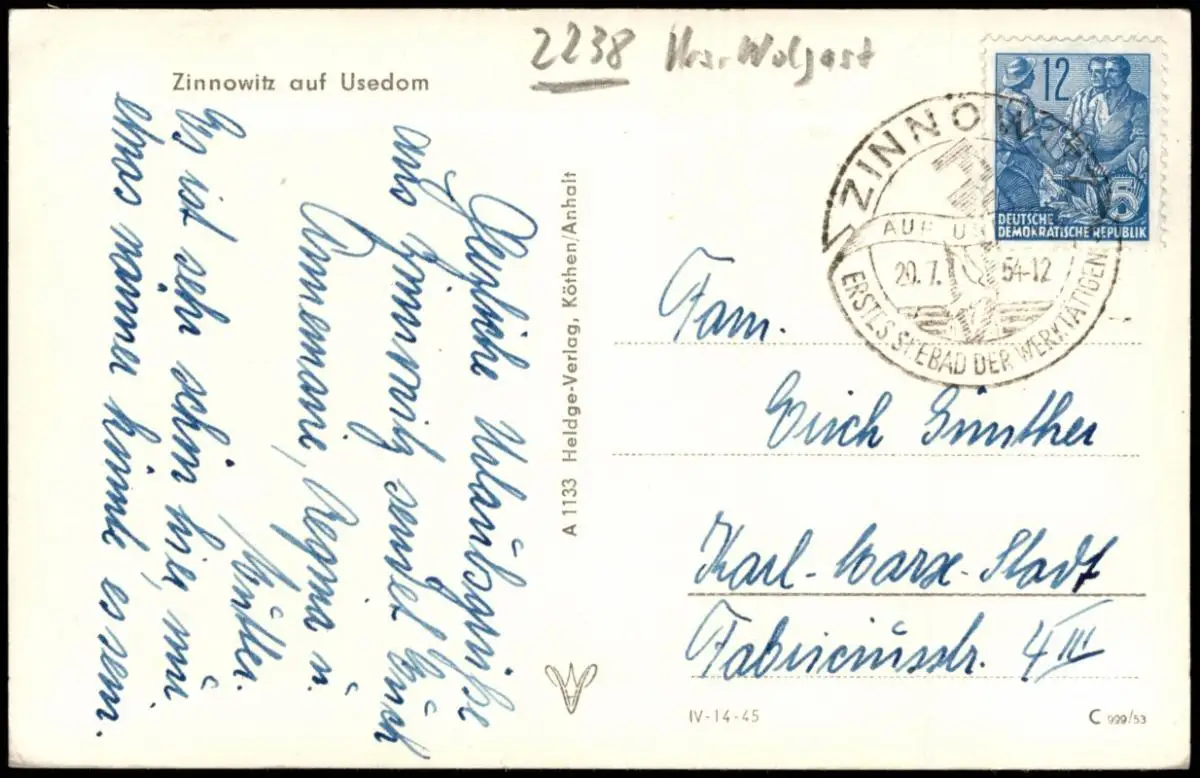 2238 Krs. Wolgast
Zinnowitz auf Usedom
Herzliche Urlaubsgrüße
aus Zinnowitz sendet Euch
Annemarie, Regina u.
Mutter.
Es ist sehr schön hier, nur
etwas wärmer könnte es sein.
A 1133 Heldge-Verlag, Köthen/Anhalt
12
5
DEUTSCHE
DEMOKRATISCHE REPUBLIK
ZINNOWITZ
AUF US
20.7. 54-12
ERSTES SEEBAD DER WERKTÄTIGEN
Fam.
Erich Günther
Karl-Marx-Stadt
Fabriciusstr. 4 III
IV-14-45
C 999/53